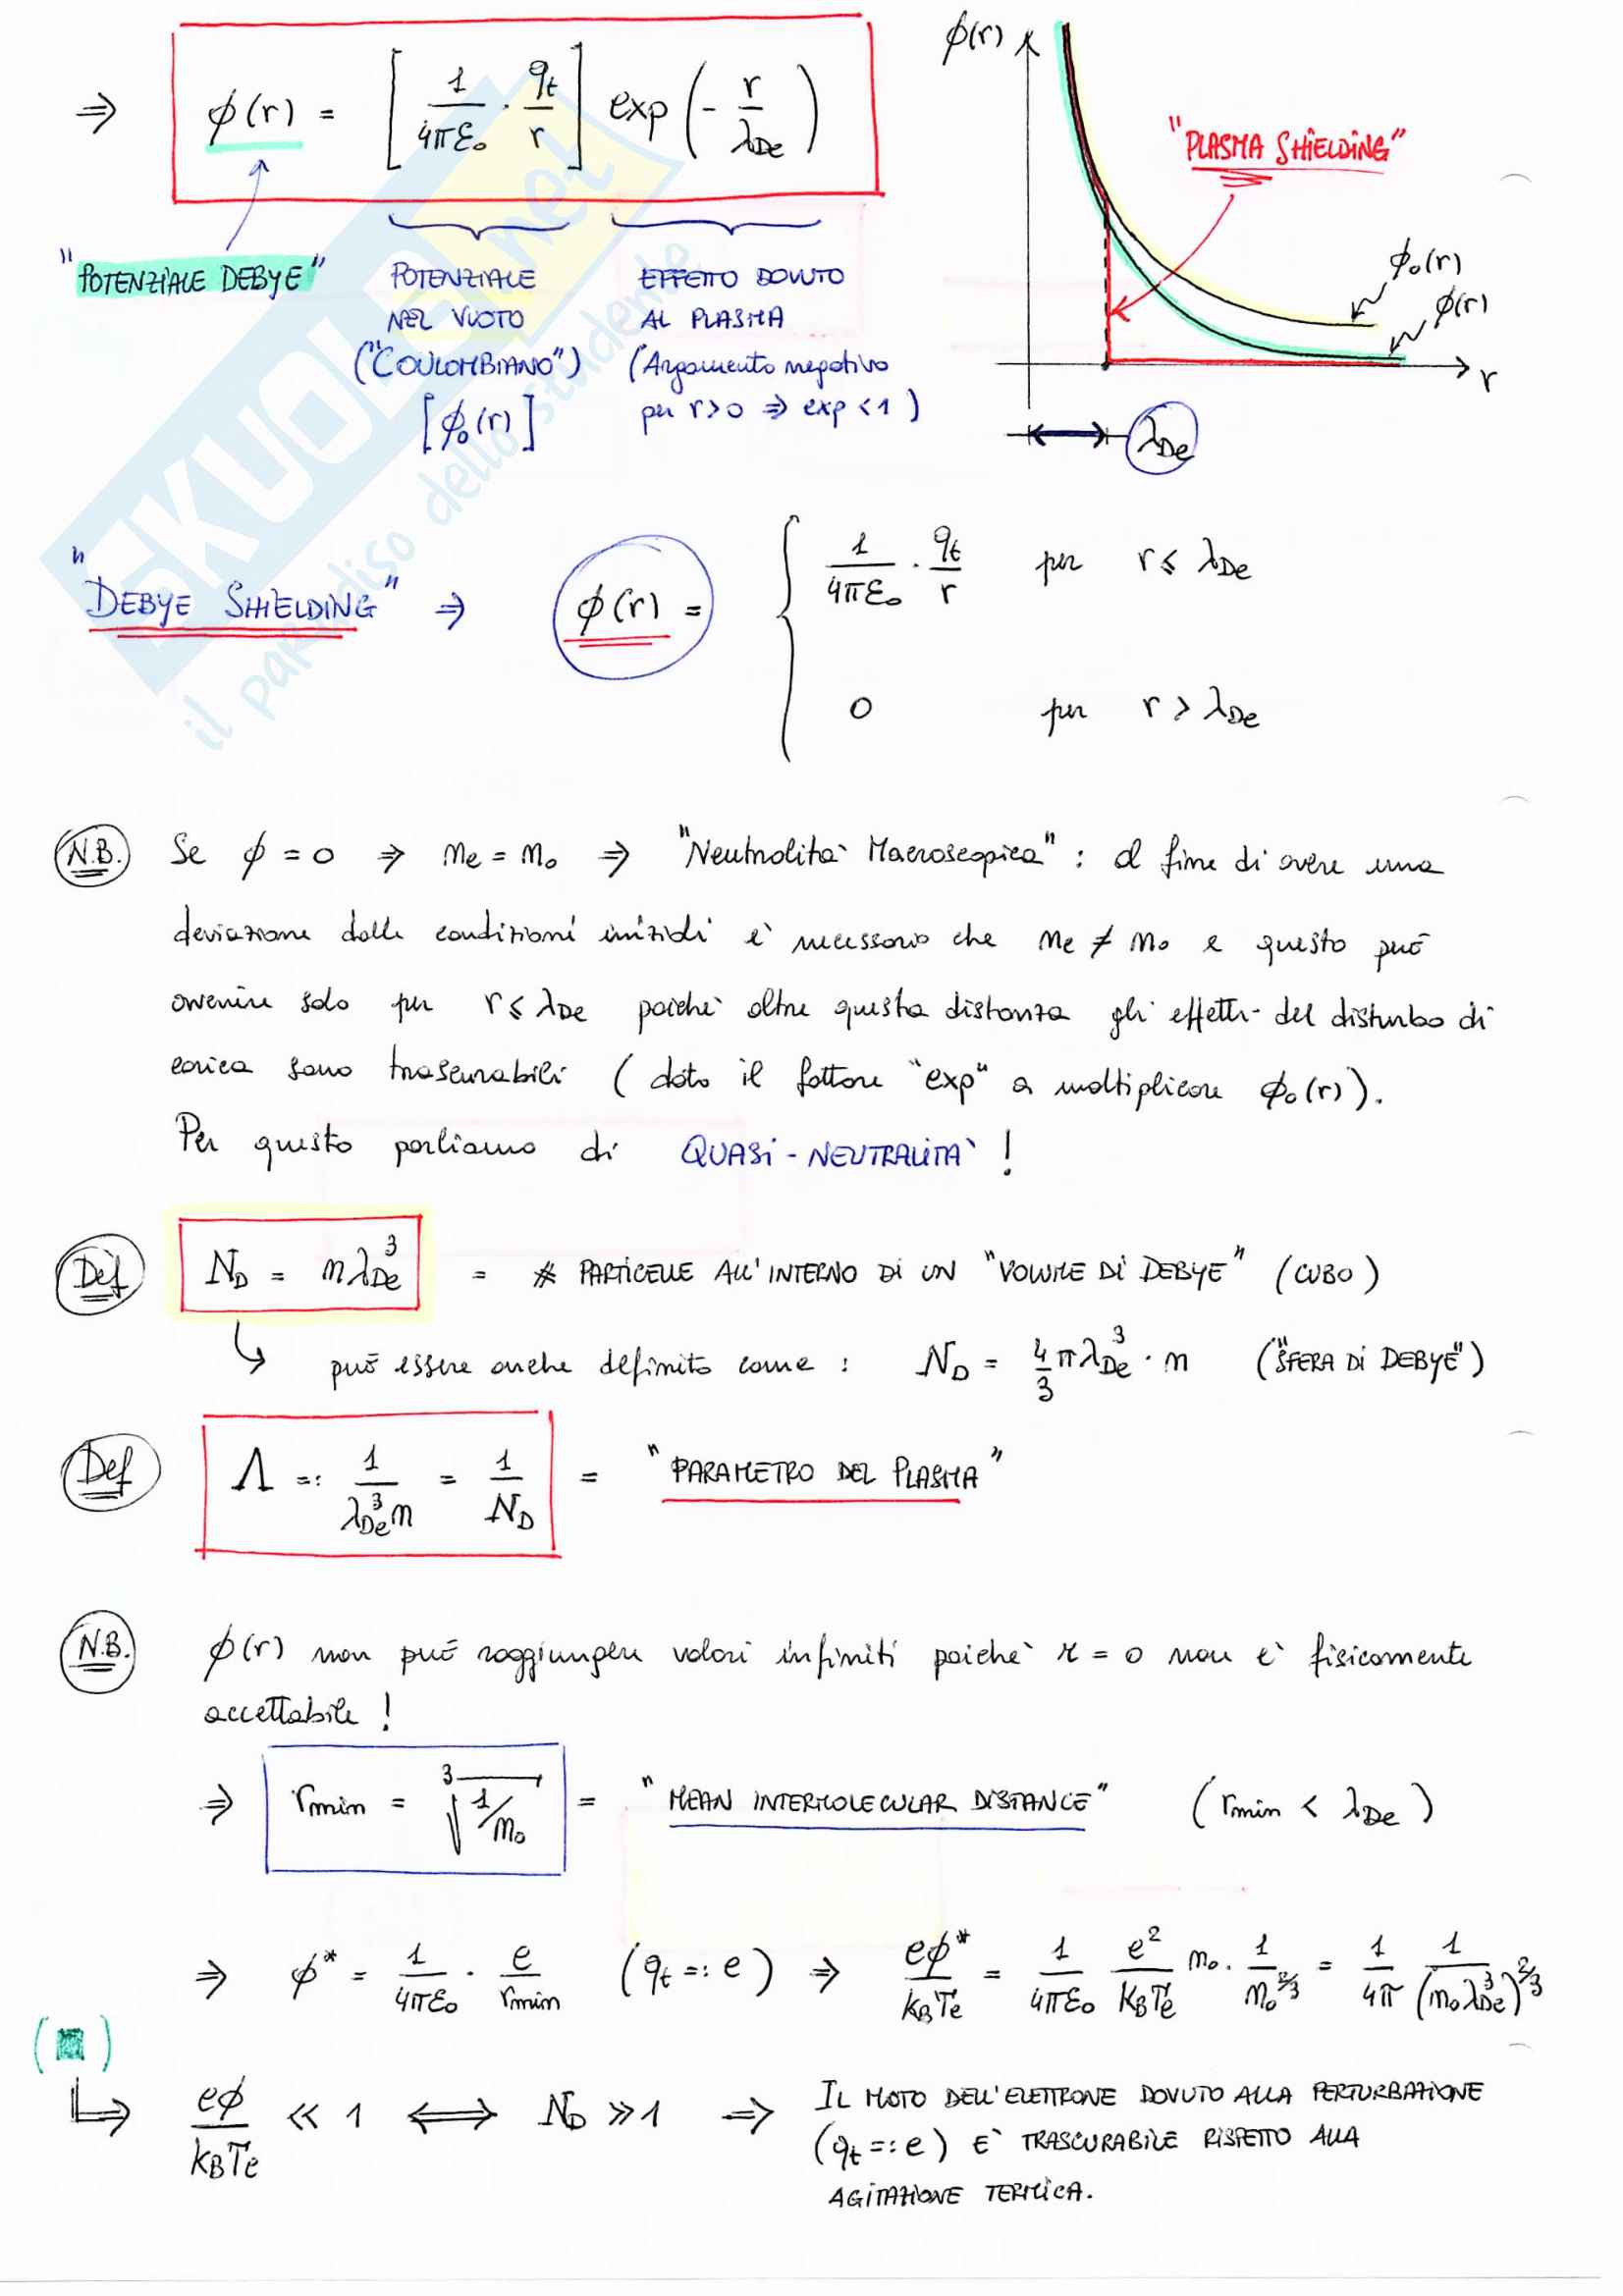 ⇒ φ(r) = [ 1/4πε₀ · q_t/r ] exp(- r/λ_De)
φ(r)
"PLASMA SHIELDING"
φ₀(r)
φ(r)
r
λ_De
"POTENZIALE DEBYE"
POTENZIALE
NEL VUOTO
("COULOMBIANO")
[φ₀(r)]
EFFETTO DOVUTO
AL PLASMA
(Argomento negativo
per r>0 ⇒ exp<1)
SKUOLA.net
il paradiso dello studente
"DEBYE SHIELDING" ⇒ φ(r) = {
1/4πε₀ · q_t/r per r ≤ λ_De
0 per r > λ_De
N.B. Se φ = 0 ⇒ n_e = n_0 ⇒ "Neutralità Macroscopica": al fine di avere una
deviazione dalle condizioni iniziali è necessario che n_e ≠ n_0 e questo può
avvenire solo per r ≤ λ_De poiché oltre questa distanza gli effetti del disturbo di
carica sono trascurabili (dato il fattore "exp" a moltiplicare φ₀(r)).
Per questo parliamo di QUASI-NEUTRALITÀ!
Def N_D = nλ_De³ = # PARTICELLE ALL'INTERNO DI UN "VOLUME DI DEBYE" (CUBO)
può essere anche definito come: N_D = 4/3 πλ_De³ · n ("SFERA DI DEBYE")
Def Λ =: 1/λ_De³n = 1/N_D = "PARAMETRO DEL PLASMA"
N.B. φ(r) non può raggiungere valori infiniti poiché r = 0 non è fisicamente
accettabile!
⇒ r_min = ³√(1/n_0) = "MEAN INTERMOLECULAR DISTANCE" (r_min < λ_De)
⇒ φ* = 1/4πε₀ · e/r_min (q_t =: e) ⇒ eφ*/k_BT_e = 1/4πε₀ e²/k_BT_e n_0 · 1/n_0^2/3 = 1/4π 1/(n_0λ_De³)^2/3
(■)
eφ/k_BT_e ≪ 1 ⟺ N_D ≫ 1 ⇒ IL MOTO DELL'ELETTRONE DOVUTO ALLA PERTURBAZIONE
(q_t =: e) E' TRASCURABILE RISPETTO ALLA
AGITAZIONE TERMICA.